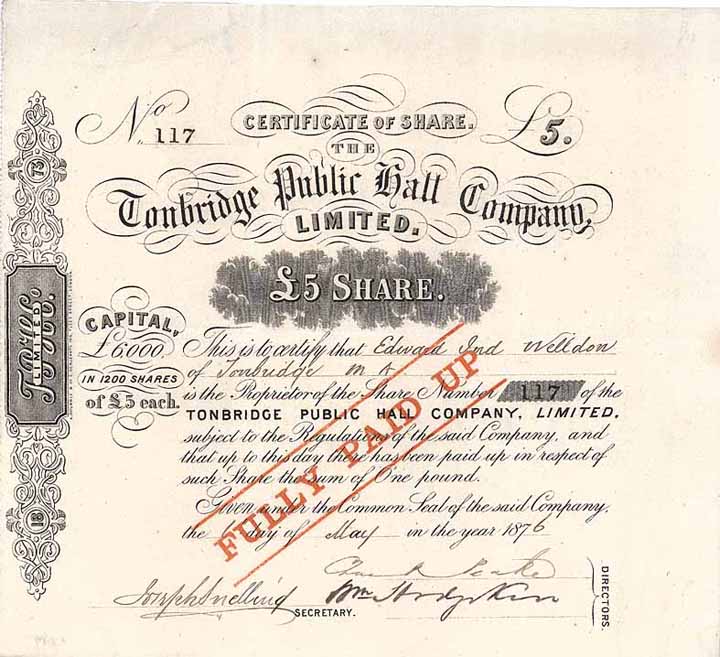 No 117
CERTIFICATE OF SHARE.
£5.
THE
Tonbridge Public Hall Company,
LIMITED.
£5 SHARE.
CAPITAL,
£6000,
IN 1200 SHARES
of £5 each.
This is to certify that Edward Ind Welldon
of Tonbridge M A
is the Proprietor of the Share Number 117 of the
TONBRIDGE PUBLIC HALL COMPANY, LIMITED,
subject to the Regulations of the said Company, and
that up to this day there has been paid up in respect of
such Share the sum of One pound.
Given under the Common Seal of the said Company,
the day of May in the year 1876
FULLY PAID UP
Joseph Snelling
SECRETARY.
Wm Hodgskin
DIRECTORS.
LIMITED.
18
73